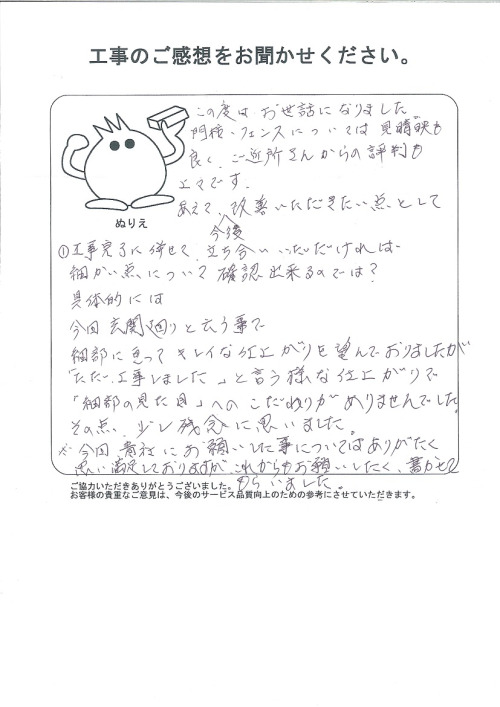 工事のご感想をお聞かせください。
この度は お世話になりました。
門横・フェンスについては 見晴映も
良く、ご近所さんからの評判も
上々です。
あえて、今後 改善いただきたい点として
ぬりえ
①工事完了に併せて、立ち合いいただければ
細かい点について確認出来るのでは?
具体的には
今回玄関廻りと云う事で
細部に至って キレイな仕上がりを望んでおりましたが
「ただ工事しました」と言う様な仕上がりで
「細部の見た目」へのこだわりがありませんでした。
その点、少し残念に思いました。
※今回 貴社にお願いした事についてはありがたく
思い満足しておりますが、これからもお願いしたく、書かせて
もらいました。
ご協力いただきありがとうございました。
お客様の貴重なご意見は、今後のサービス品質向上のための参考にさせていただきます。